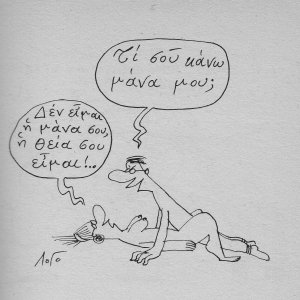 Τί σοῦ κάνω
μάνα μου;
Δέν εἶμαι
ἡ μάνα σου,
ἡ θεία σου
εἶμαι!..